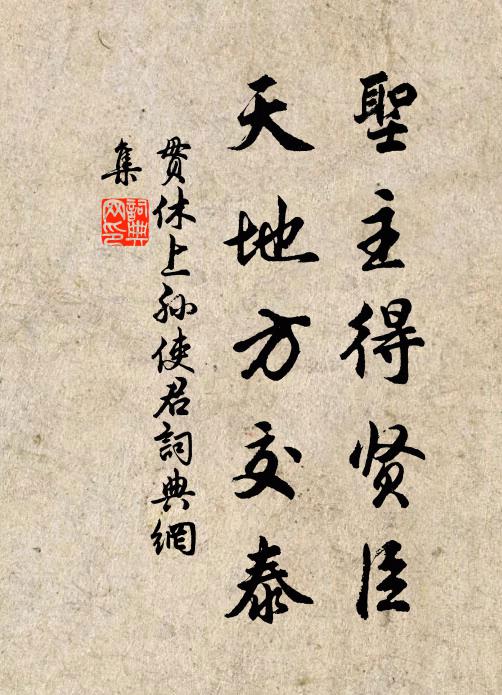 聖主得贤臣
天地方交泰
贯休上孙使君詞典網
集
詞典
网印